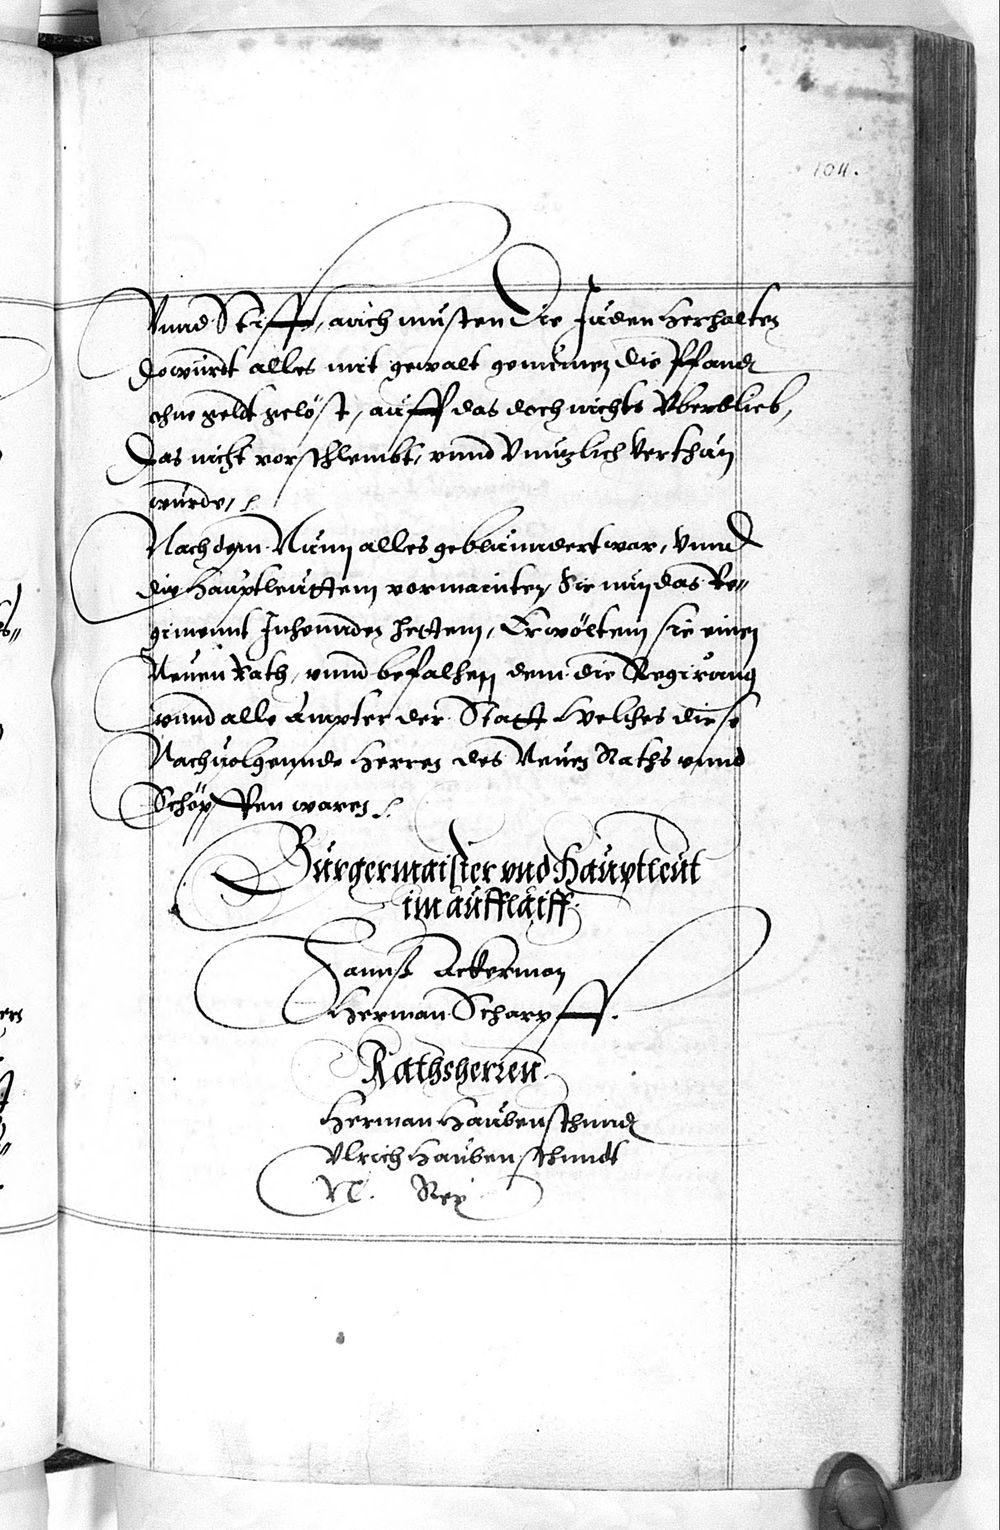 104.
Vnnd Stifft, auch musten die Juden herhalten
do wurdt alles mit gewalt genummen die Pfandt
ohne geldt gelöst, auff das doch nichts Vberblieb,
Das nicht vorschlembt, vnnd Vnnutzlich Verthan
wurde,
Nach dem Nunn alles geblunndert war, Vnnd
die Hauptleutten vermainten, Sie nun das Re=
gimennt Inhennden hetten, Erwölten sie einen
Neuen Rath, vnnd befalhen dem die Regirung
vnnd alle ämpter der Statt Welches diese
Nachuolgennde Herren des Neuen Raths vnnd
Schöpffen waren
Burgermaister vnd Hauptleut
im aufflauff.
Hannß Ackerman
Herman Scharpff.
Rathsherren
Herman Haubenschmidt
Vlrich Haubenschmidt
N. Rey